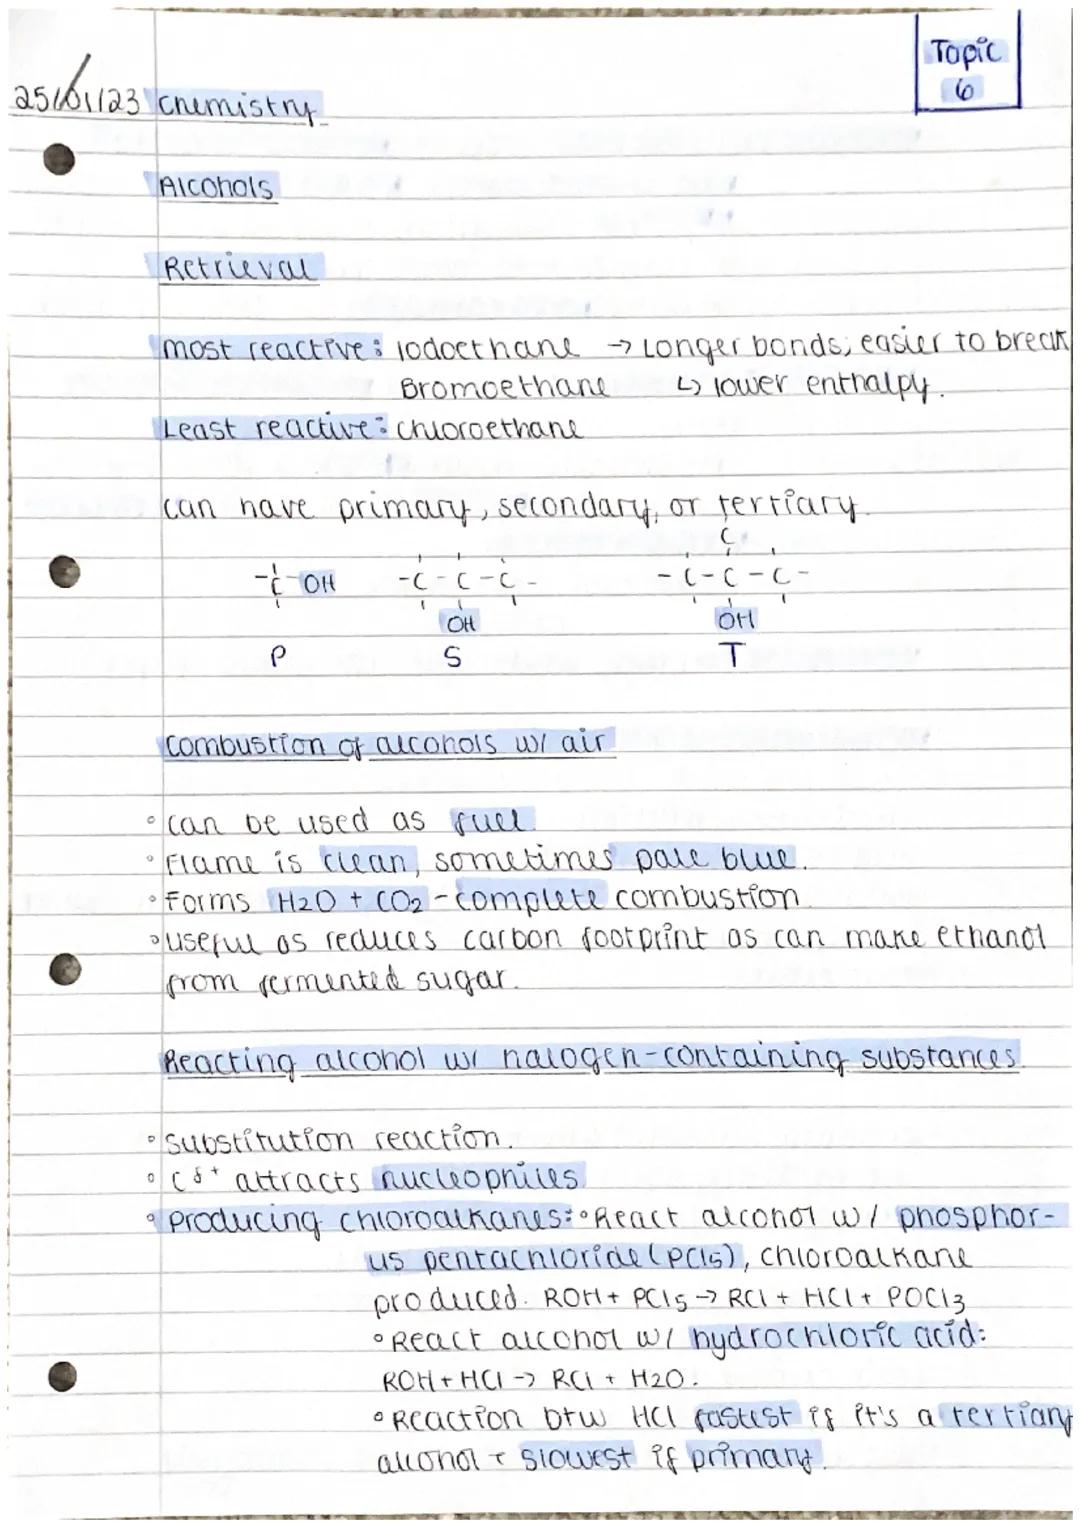 Topic
6
25/01/23 Chemistry
Alcohols
Retrieval
most reactive: Iodoethane → Longer bonds; easier to break
Bromoethane ↳ lower enthalpy.
Least reactive: chloroethane
can have primary, secondary, or tertiary.
C
-C-OH -C-C-C- -C-C-C-
OH OH
P S T
Combustion of alcohols w/ air
◦ can be used as fuel.
◦ Flame is clean, sometimes pale blue.
◦ Forms H2O + CO2 - complete combustion.
◦ useful as reduces carbon footprint as can make ethanol
from fermented sugar.
Reacting alcohol w/ halogen-containing substances.
◦ Substitution reaction.
◦ Cδ+ attracts nucleophiles
◦ Producing chloroalkanes: ◦ React alcohol w/ phosphor-
us pentachloride (PCl5), chloroalkane
produced. ROH + PCl5 → RCl + HCl + POCl3
◦ React alcohol w/ hydrochloric acid:
ROH + HCl → RCl + H2O.
◦ Reaction btw HCl fastest if it's a tertiary
alcohol + slowest if primary.